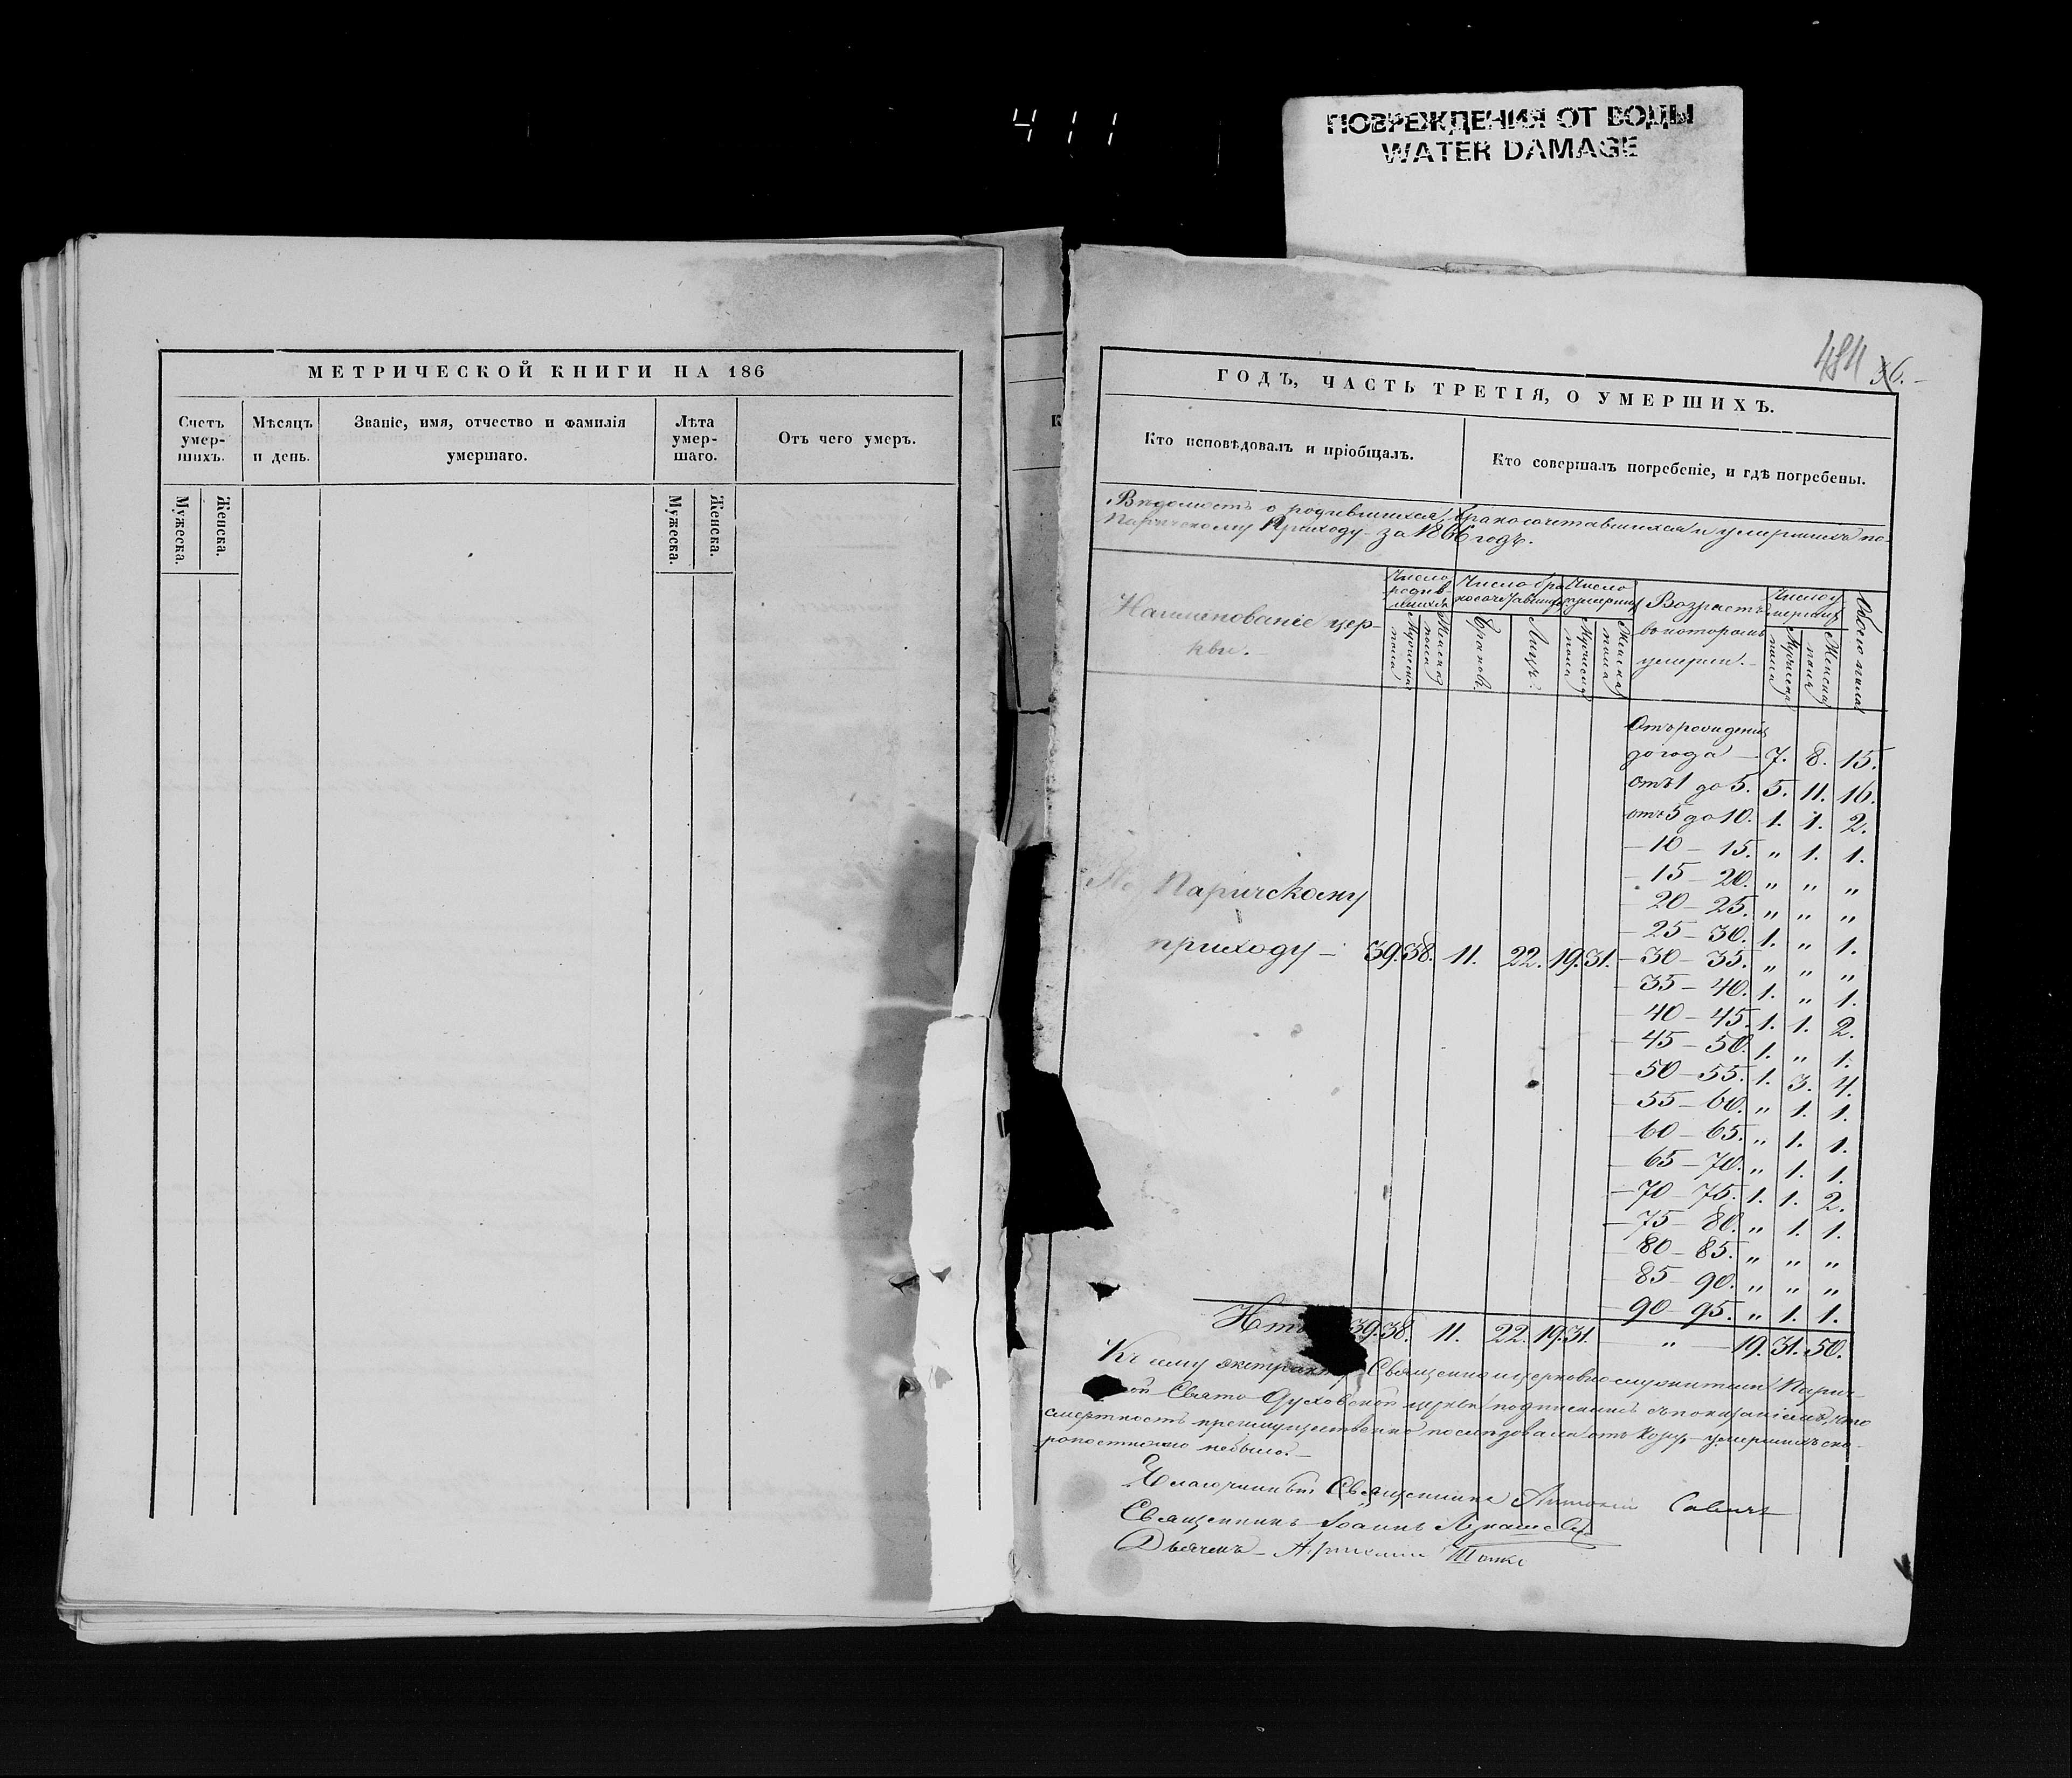 411
ПОВРЕЖДЕНИЯ ОТ ВОДЫ
WATER DAMAGE
МЕТРИЧЕСКОЙ КНИГИ НА 186
Счетъ умер-шихъ.
Мужеска.
Женска.
Мѣсяцъ и день.
Званіе, имя, отчество и фамилія умершаго.
Лѣта умер-шаго.
Мужеска.
Женска.
Отъ чего умеръ.
К
36.
ГОДЪ, ЧАСТЬ ТРЕТІЯ, О УМЕРШИХЪ.
Кто исповѣдовалъ и пріобщалъ.
Кто совершалъ погребеніе, и гдѣ погребены.
Вѣдомость о родившихся, бракосочетавшихся и умершихъ по
Паричскому Приходу за 1866 годъ.
Наименованіе цер-
кви.
Число родив-шихся
Мужеска пола
Женска пола
Число бра-косочетавших
Браковъ.
Лицъ.
Число умерших
Мужеска пола
Женска пола
Возрастъ
въ которомъ
умерли.
Число умерших
Мужеска пола
Женска пола
Обоего пола
Отъ рожденія
до года 7. 8. 15.
отъ 1 до 5. 5. 11. 16.
отъ 5 до 10. 1. 1. 2.
— 10 — 15. „ 1. 1.
— 15 — 20. „ „ „
— 20 — 25. „ „ „
— 25 — 30. 1. „ 1.
— 30 — 35. „ „ „
— 35 — 40. 1. „ 1.
— 40 — 45. 1. 1. 2.
— 45 — 50. 1. „ 1.
— 50 — 55. 1. 3. 4.
— 55 — 60. „ 1. 1.
— 60 — 65. „ 1. 1.
— 65 — 70. „ 1. 1.
— 70 — 75. 1. 1. 2.
— 75 — 80. „ 1. 1.
— 80 — 85. „ „ „
— 85 — 90. „ „ „
— 90 — 95. „ 1. 1.
По Паричскому
приходу — 39. 38. 11. 22. 19. 31.
Ито 39. 38. 11. 22. 19. 31. — „ — 19. 31. 50.
Къ сему экстракту Священно и церковнослужители Парич-
ской Свято Духовской церкви подписались съ показаніемъ, что
смертность преимущественно последовала отъ умершихъ ско-
ропостижно небыло.
Благочинный Священникъ Антоній Савичъ
Священникъ Іоаннъ
Дьячекъ